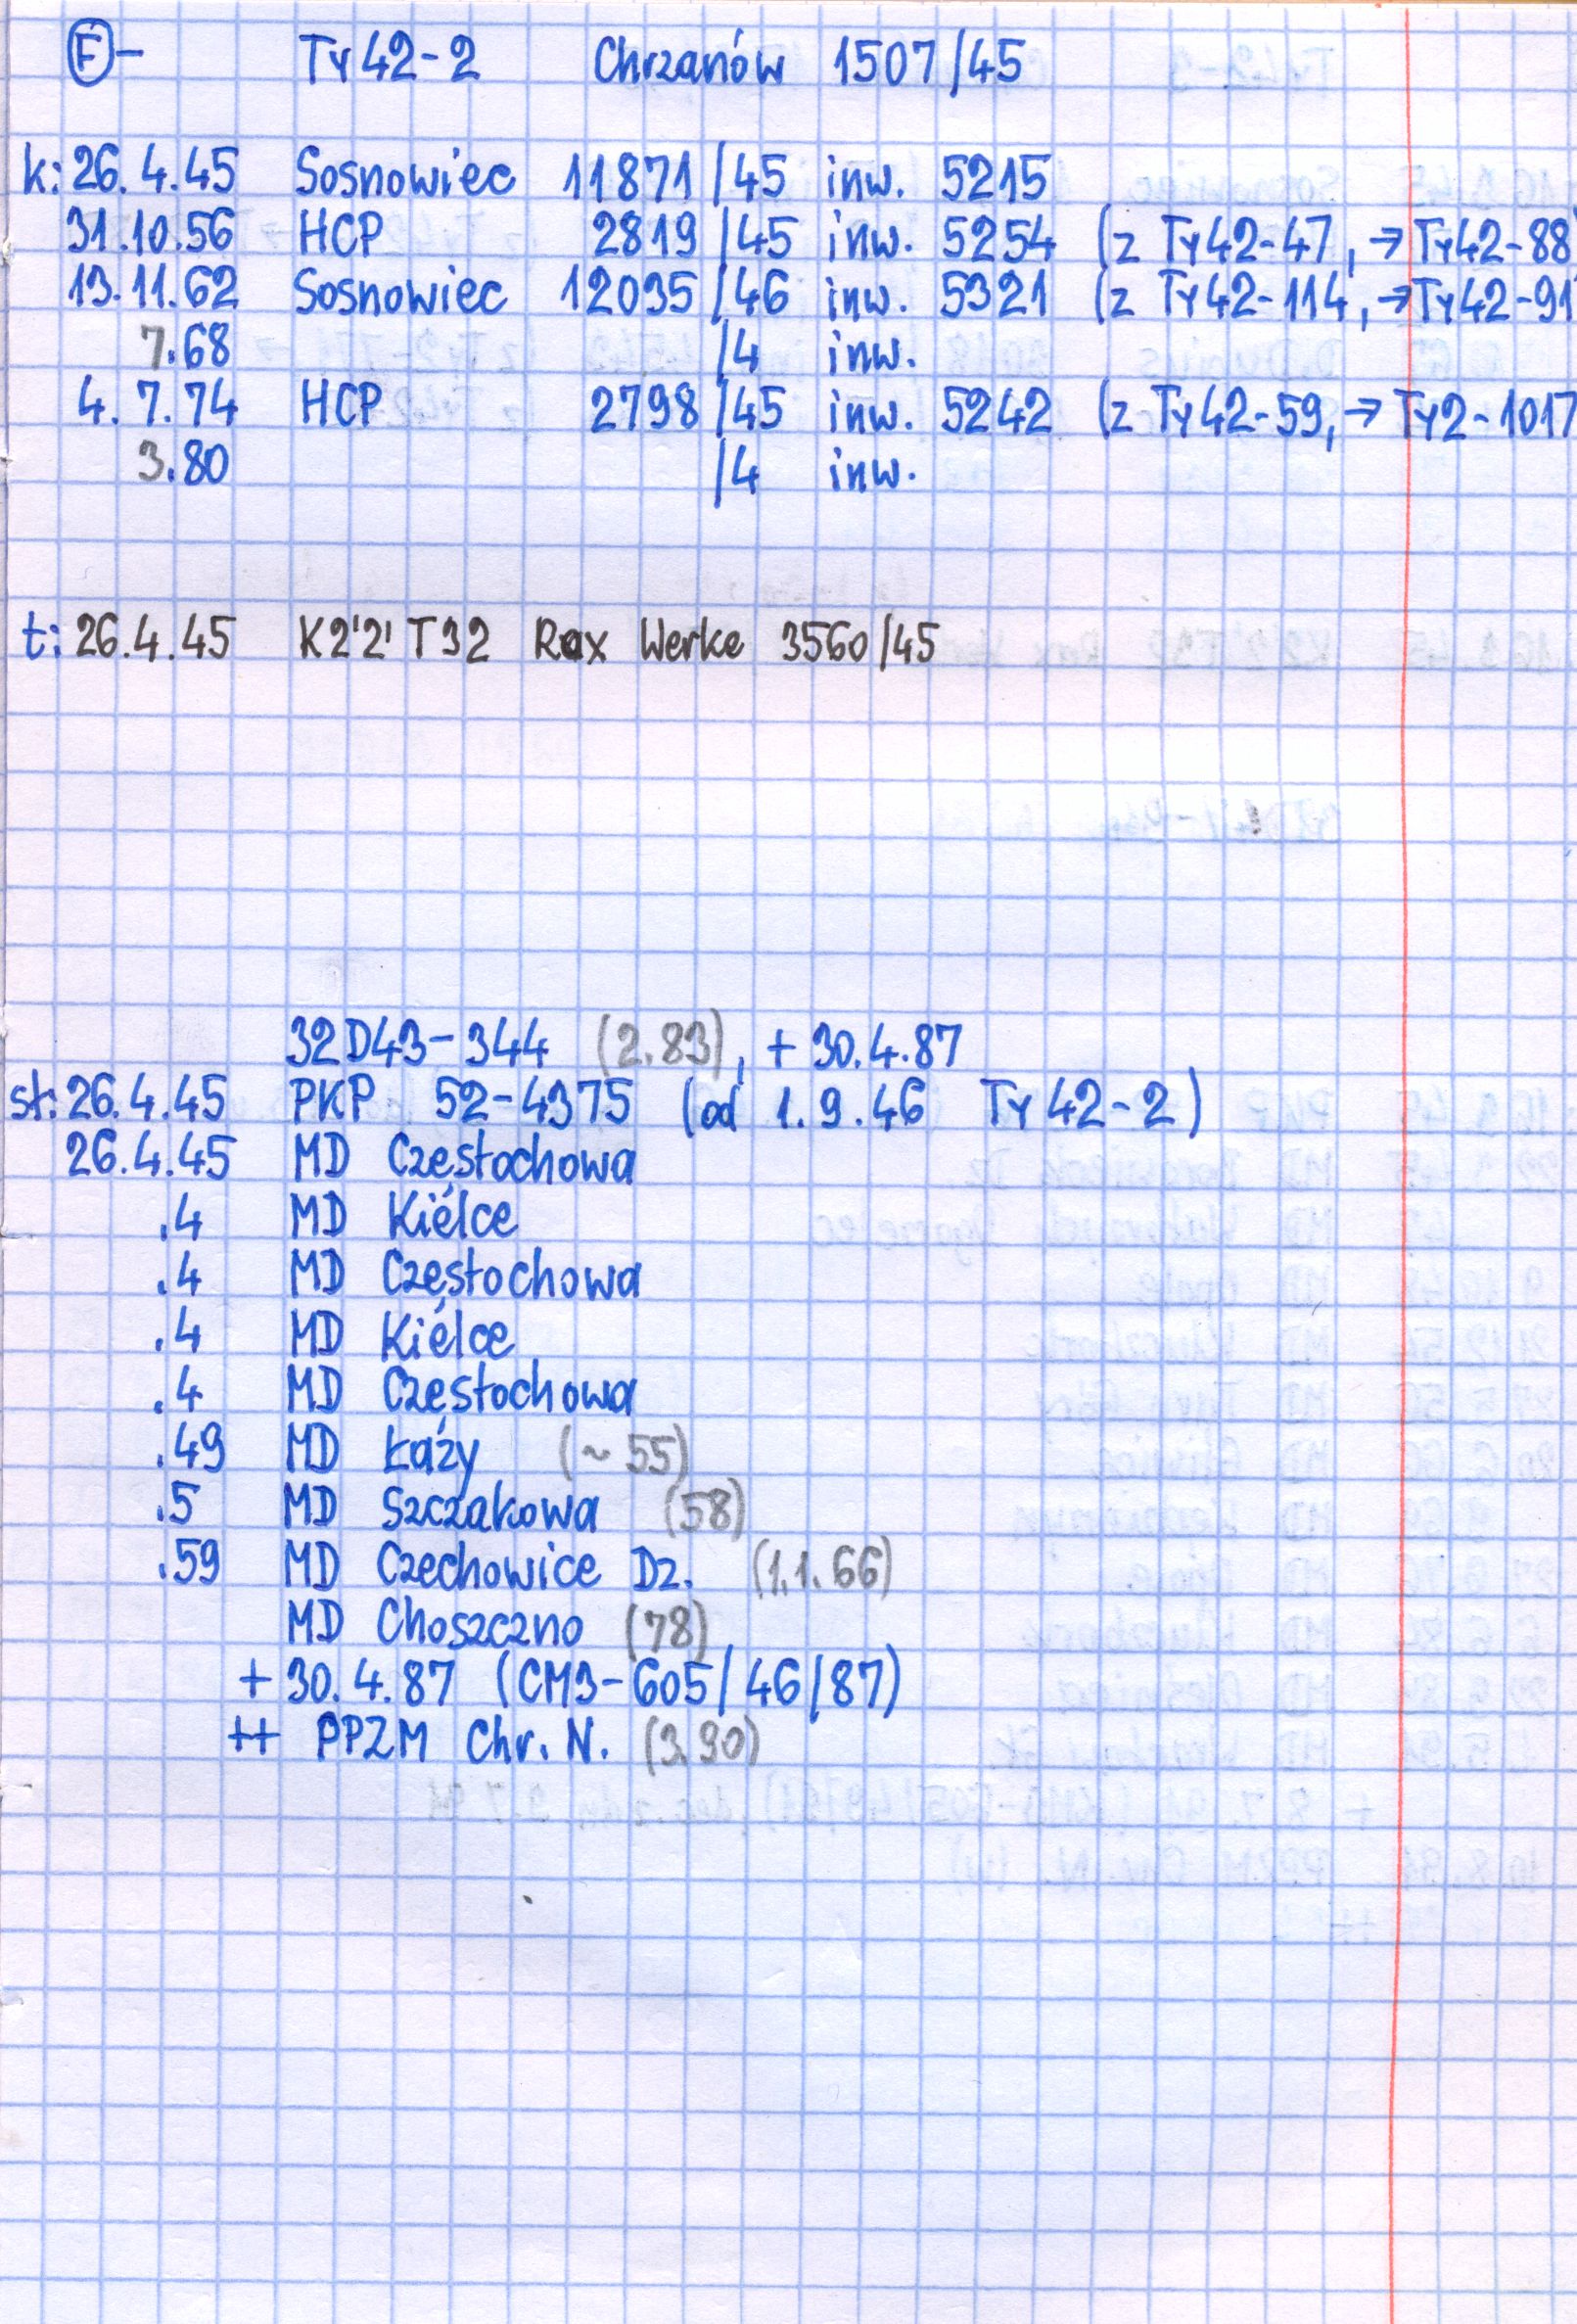 F - Ty42-2 Chrzanów 1507/45
k: 26.4.45 Sosnowiec 11871/45 inw. 5215
31.10.56 HCP 2819/45 inw. 5254 (z Ty42-47, → Ty42-88)
13.11.62 Sosnowiec 12035/46 inw. 5321 (z Ty42-114, → Ty42-91)
7.68 /4 inw.
4.7.74 HCP 2798/45 inw. 5242 (z Ty42-59, → Ty2-1017
3.80 /4 inw.
t: 26.4.45 K2'2' T32 Rax Werke 3560/45
32D43-344 (2.83), + 30.4.87
st: 26.4.45 PKP 52-4375 (od 1.9.46 Ty42-2)
26.4.45 MD Częstochowa
.4 MD Kielce
.4 MD Częstochowa
.4 MD Kielce
.4 MD Częstochowa
.49 MD Łazy (~ 55)
.5 MD Szczakowa (58)
.59 MD Czechowice Dz. (1.1.66)
MD Choszczno (78)
+ 30.4.87 (CM3-605/46/87)
++ PPZM Chr. N. (3.90)